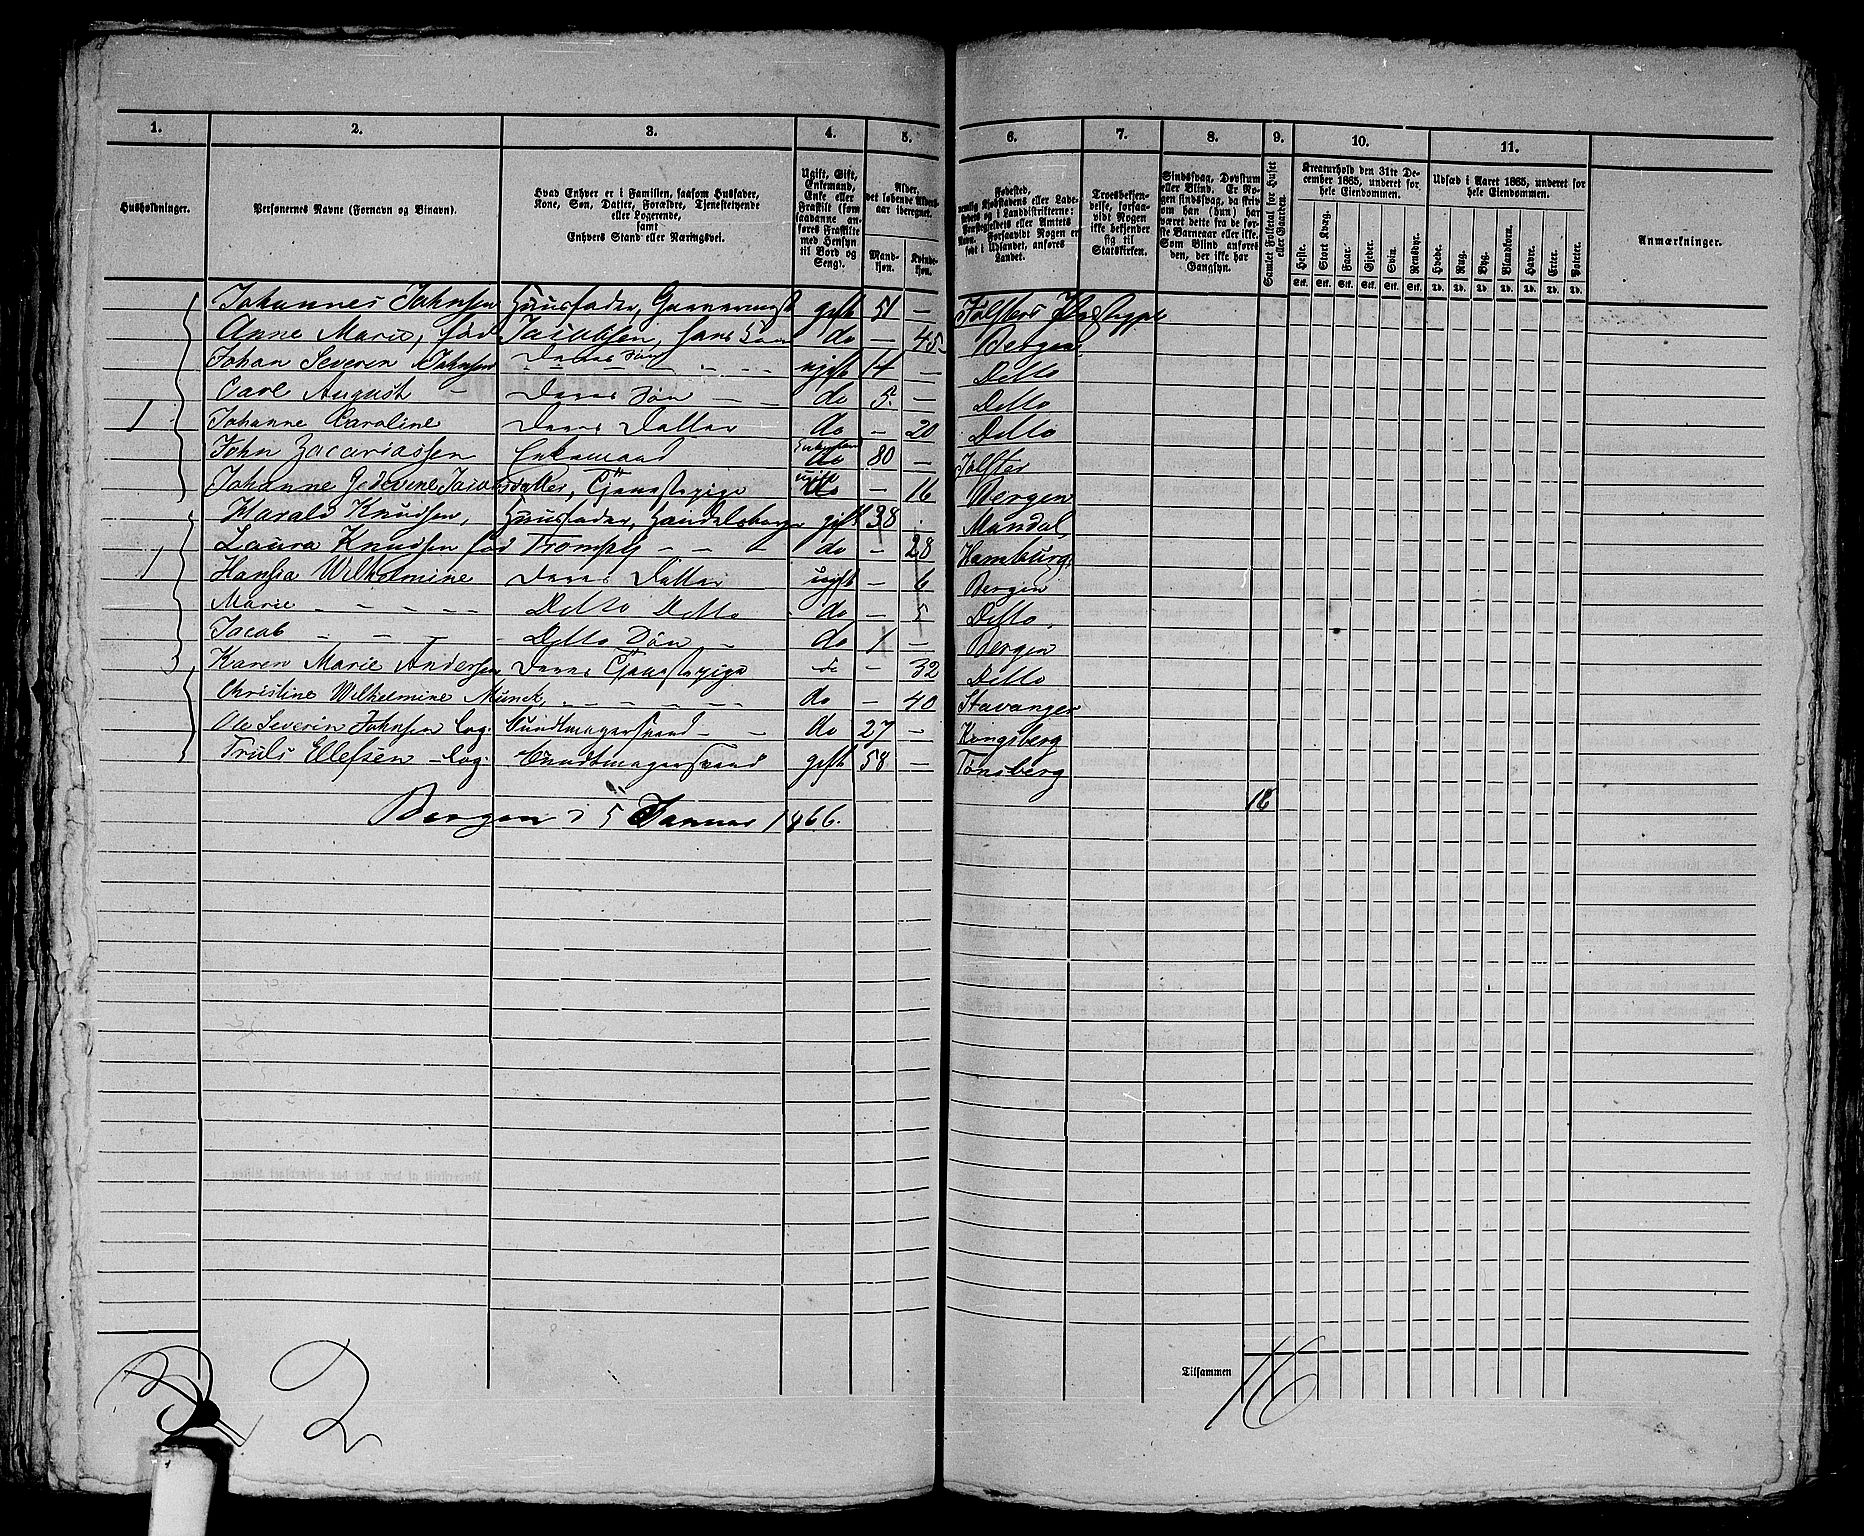 1. 2. 3. 4. 5. 6. 7. 8. 9. 10. 11.
Husholdninger.
Personernes Navne (Fornavn og Binavn).
Hvad Enhver er i Familien, saasom Husfader,
Kone, Søn, Datter, Forældre, Tjenestetyende
eller Logerende,
samt
Enhvers Stand eller Næringsvei.
Ugift, Gift,
Enkemand,
Enke eller
Fraskilt (som
saadanne an-
føres Fraskilte
med Hensyn
til Bord og
Seng).
Alder,
det løbende Alders-
aar iberegnet.
Mand-
kjøn.
Kvinde-
kjøn.
Fødested,
Landet.
Troesbekjen-
delse, forsaa-
vidt Nogen
ikke bekjender
sig til
Statskirken.
Sindssvag, Døvstum
eller Blind. Er No-
gen sindssvag, da skriv
om han (hun) har
været dette fra de før-
ste Barneaar eller ikke.
Som Blind anføres
den, der ikke har
Gangsyn.
Samlet Folketal for Huset
eller Gaarden.
Kreaturhold den 31te De-
cember 1865, underet for
hele Eiendommen.
Heste. Stort Kvæg. Faar. Gjeder. Svin. Rensdyr.
Stk. Stk. Stk. Stk. Stk. Stk.
Udsæd i Aaret 1865, underet for
hele Eiendommen.
Hvede. Rug. Byg. Blandkorn. Havre. Erter. Poteter.
Td. Td. Td. Td. Td. Td. Td.
Anmærkninger.
Johannes Johnsen Huusfader, gift 51 — Jølsters
Anne Marie, fød Jacobsen, hans do — 45 Bergen
Johan Severin Johnsen Deres Søn ugift 14 — Ditto
Carl August — Deres Søn — — do 5 — Ditto
1 Johanne Caroline Deres Datter do — 20 Ditto
John Zacariassen Enkemand do 80 — Jølster
Johanne Tjenestepige ugift do — 16 Bergen
Harald Knudsen, Huusfader, gift 38 Mandal
Laura Knudsen fød — — — do — 28 Hamburg
1 Wilhelmine Deres Datter ugift — 6 Bergen
Marie — — — — — Ditto Ditto do — 5 Ditto
Jacob — — — — Ditto Søn — do 1 — Bergen
Karen Marie Andersen Deres Tjenestepige do — 32 Ditto
Christine Wilhelmine Munck, — — — — — do — 40 Stavanger
Ole Severin Johnsen Log. Bundtmagersvend — — do 27 — Kongsberg
Truls Ellefsen — Log. Bundtmagersvend gift 58 — Tønsberg
16
Bergen d 5 Januar 1866.
Tilsammen 16
2